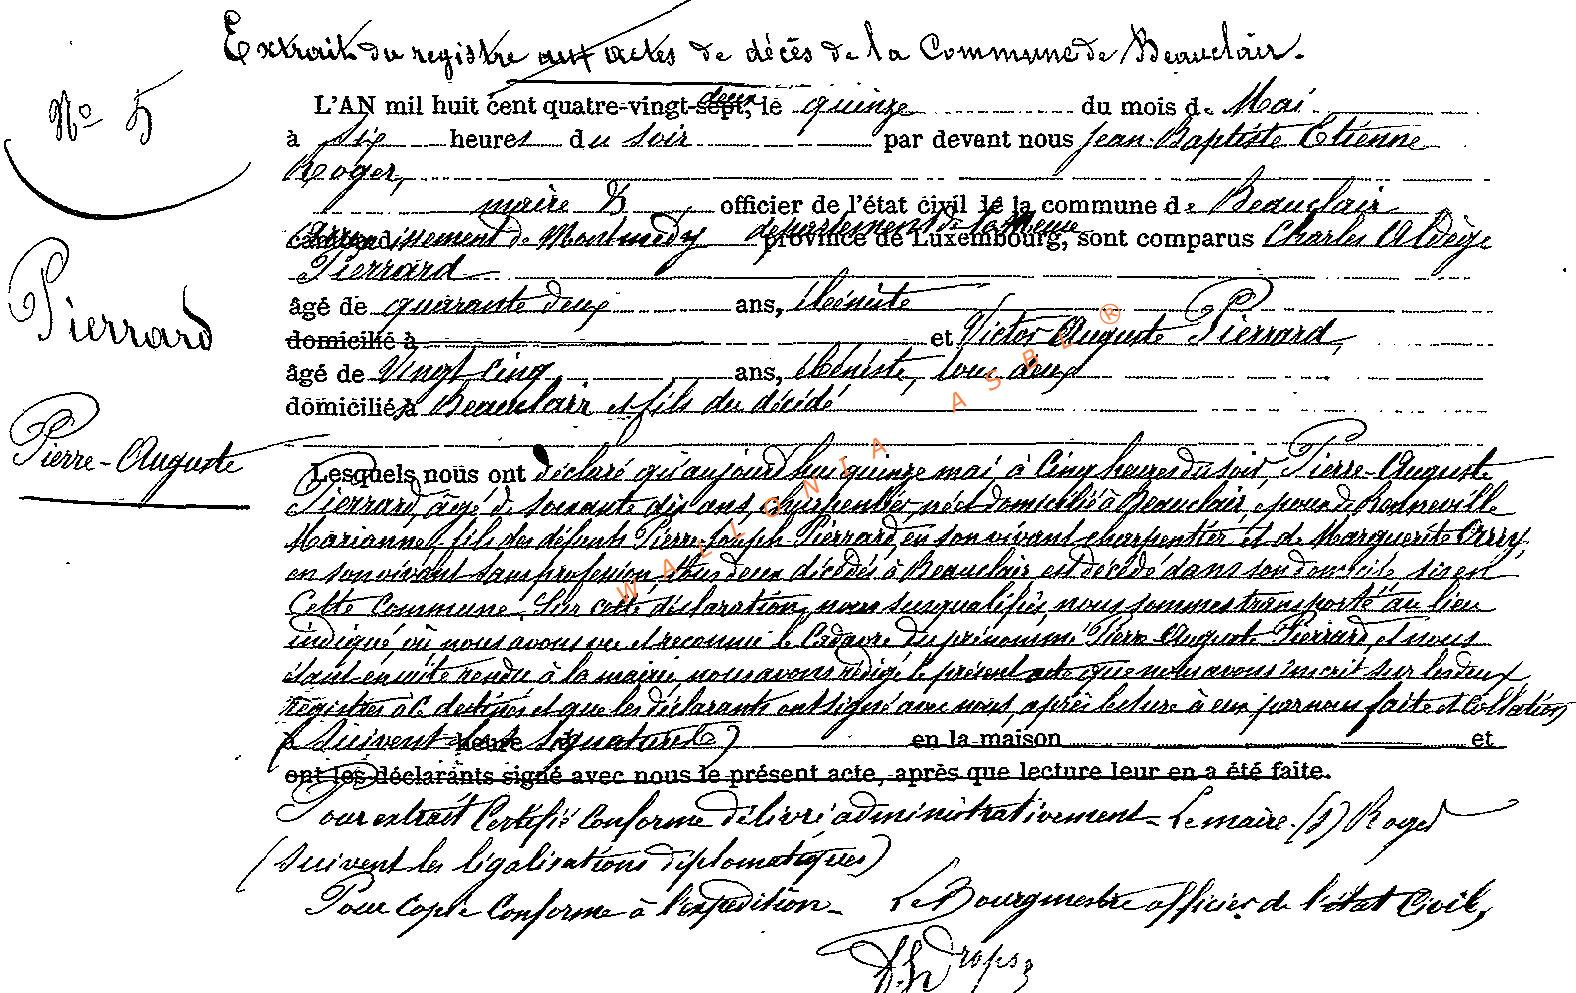 Extrait du registre aux actes de décès de la Commune de Beauclair.
N° 5
L'AN mil huit cent quatre-vingt-sept, deux le quinze du mois de Mai
à six heures du soir par devant nous Jean-Baptiste Etienne
Roger,
maire & officier de l'état civil de la commune de Beauclair
arrondissement de Montmédy département de la Meuse province de Luxembourg, sont comparus Charles Aldège
Pierrard
Pierrard
âgé de quarante deux ans, ébéniste
domicilié à et Victor Auguste Pierrard,
âgé de Vingt cinq ans, ébéniste, tous deux
domiciliés à Beauclair et fils du décédé
Pierre-Auguste
Lesquels nous ont déclaré qu'aujourd'hui quinze mai, à Cinq heures du soir, Pierre-Auguste
Pierrard, âgé de soixante dix ans, charpentier, né et domicilié à Beauclair, époux de Ronneville
Marianne, fils des défunts Pierre Joseph Pierrard, en son vivant charpentier et de Marguerite Arry,
en son vivant sans profession, tous deux décédés à Beauclair, est décédé dans son domicile, sis en
Cette Commune. Sur cette déclaration, nous susqualifiés, nous sommes transporté au lieu
indiqué, où nous avons vu et reconnu le Cadavre du prénommé Pierre Auguste Pierrard, et nous
étant ensuite rendu à la mairie, nous avons rédigé le présent acte que nous avons inscrit sur les deux
régistres à ce destinés et que les déclarants ont signé avec nous, après lecture à eux par nous faite et Collation
(Suivent les signatures) heure en la maison et
ont les déclarants signé avec nous le présent acte, après que lecture leur en a été faite.
Pour extrait Certifié Conforme délivré administrativement - Le maire. (s) Roger
(Suivent les légalisations diplomatiques)
Pour copie Conforme à l'expédition - Le Bourgmestre officier de l'état Civil,
WALLONIA ASBL ®